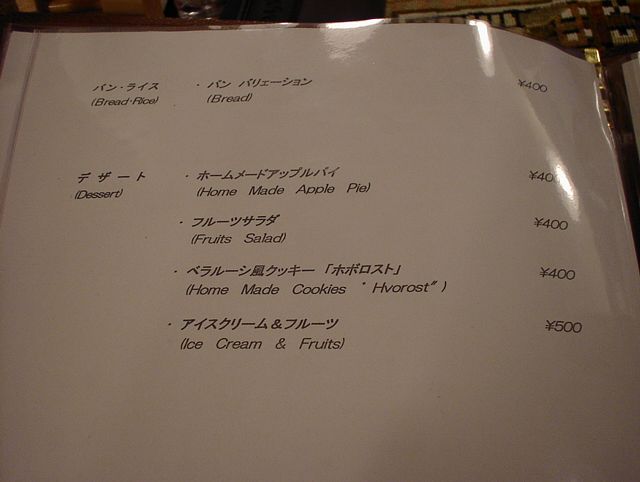 パン・ライス ・ パン バリエーション ¥400
(Bread・Rice) (Bread)
デザート ・ ホームメードアップルパイ ¥400
(Dessert) (Home Made Apple Pie)
・ フルーツサラダ ¥400
(Fruits Salad)
・ ベラルーシ風クッキー 「ホボロスト」 ¥400
(Home Made Cookies " Hvorost" )
・ アイスクリーム&フルーツ ¥500
(Ice Cream & Fruits)